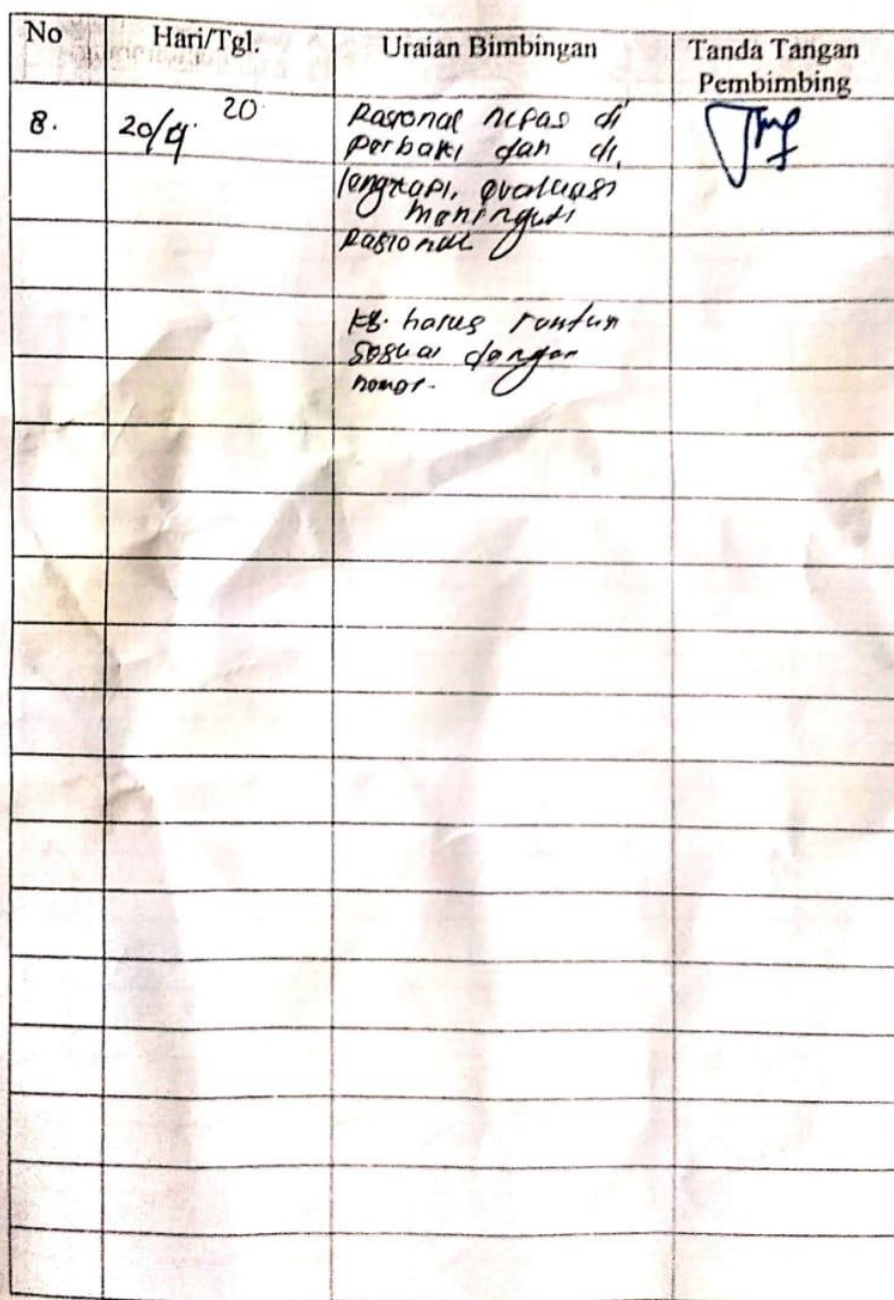 No Hari/Tgl. Uraian Bimbingan Tanda Tangan Pembimbing
8. 20/4 20 Rasional nifas di
perbaiki dan di
lengkapi, evaluasi
mengikuti
Rasional
KB. harus runtun
sesuai dengan
nomor.